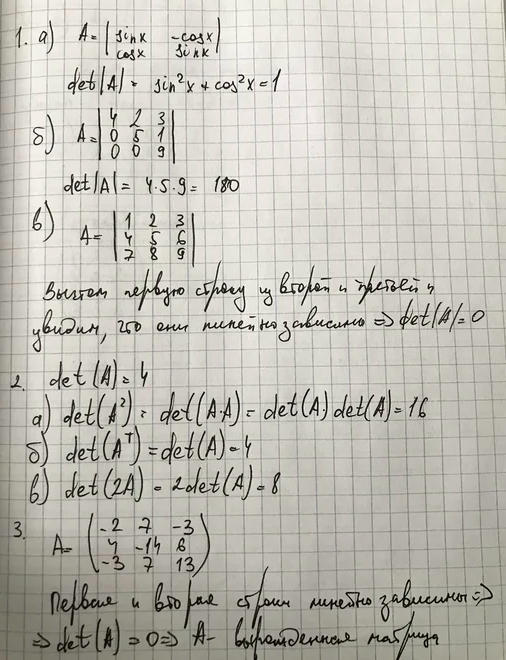 1. а) A = | sinx -cosx |
| cosx sinx |
det|A| = sin²x + cos²x = 1
б) A = | 4 2 3 |
| 0 5 1 |
| 0 0 9 |
det|A| = 4·5·9 = 180
в) A = | 1 2 3 |
| 4 5 6 |
| 7 8 9 |
Вычтем первую строку из второй и третьей и
увидим, что они линейно зависимы ⇒ det|A| = 0
2. det(A) = 4
а) det(A²) = det(A·A) = det(A) det(A) = 16
б) det(Aᵀ) = det(A) = 4
в) det(2A) = 2det(A) = 8
3. A = ( -2 7 -3 )
( 4 -14 6 )
( -3 7 13 )
Первая и вторая строки линейно зависимы ⇒
⇒ det(A) = 0 ⇒ A - вырожденная матрица